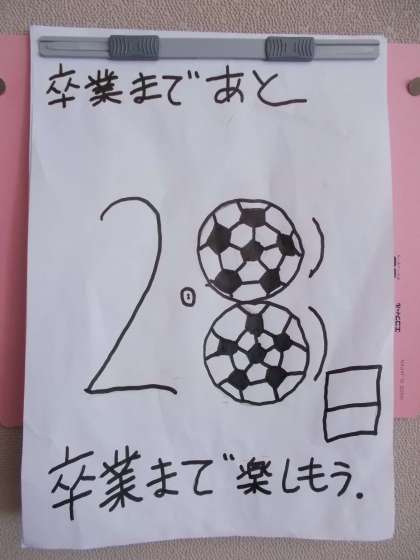 卒業まであと
28日
卒業まで楽しもう.